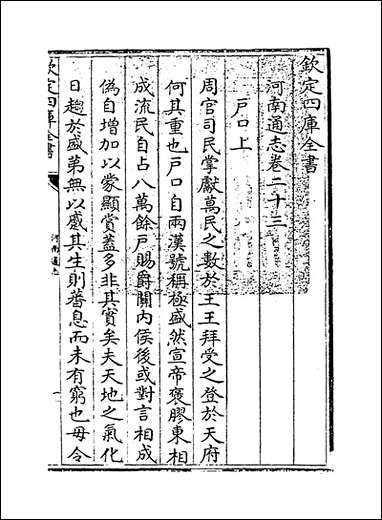 欽定四庫全書
河南通志卷二十三
戶口上
周官司民掌獻萬民之數於王王拜受之登於天府
何其重也戶口自兩漢號稱極盛然宣帝褒膠東相
成流民自占八萬餘戶賜爵關內侯後或對言相成
偽自增加以蒙顯賞蓋多非其實矣夫天地之氣化
日趨於盛苐無以蹙其生則蕃息而未有窮也毋令
欽定四庫全書
河南通志
一